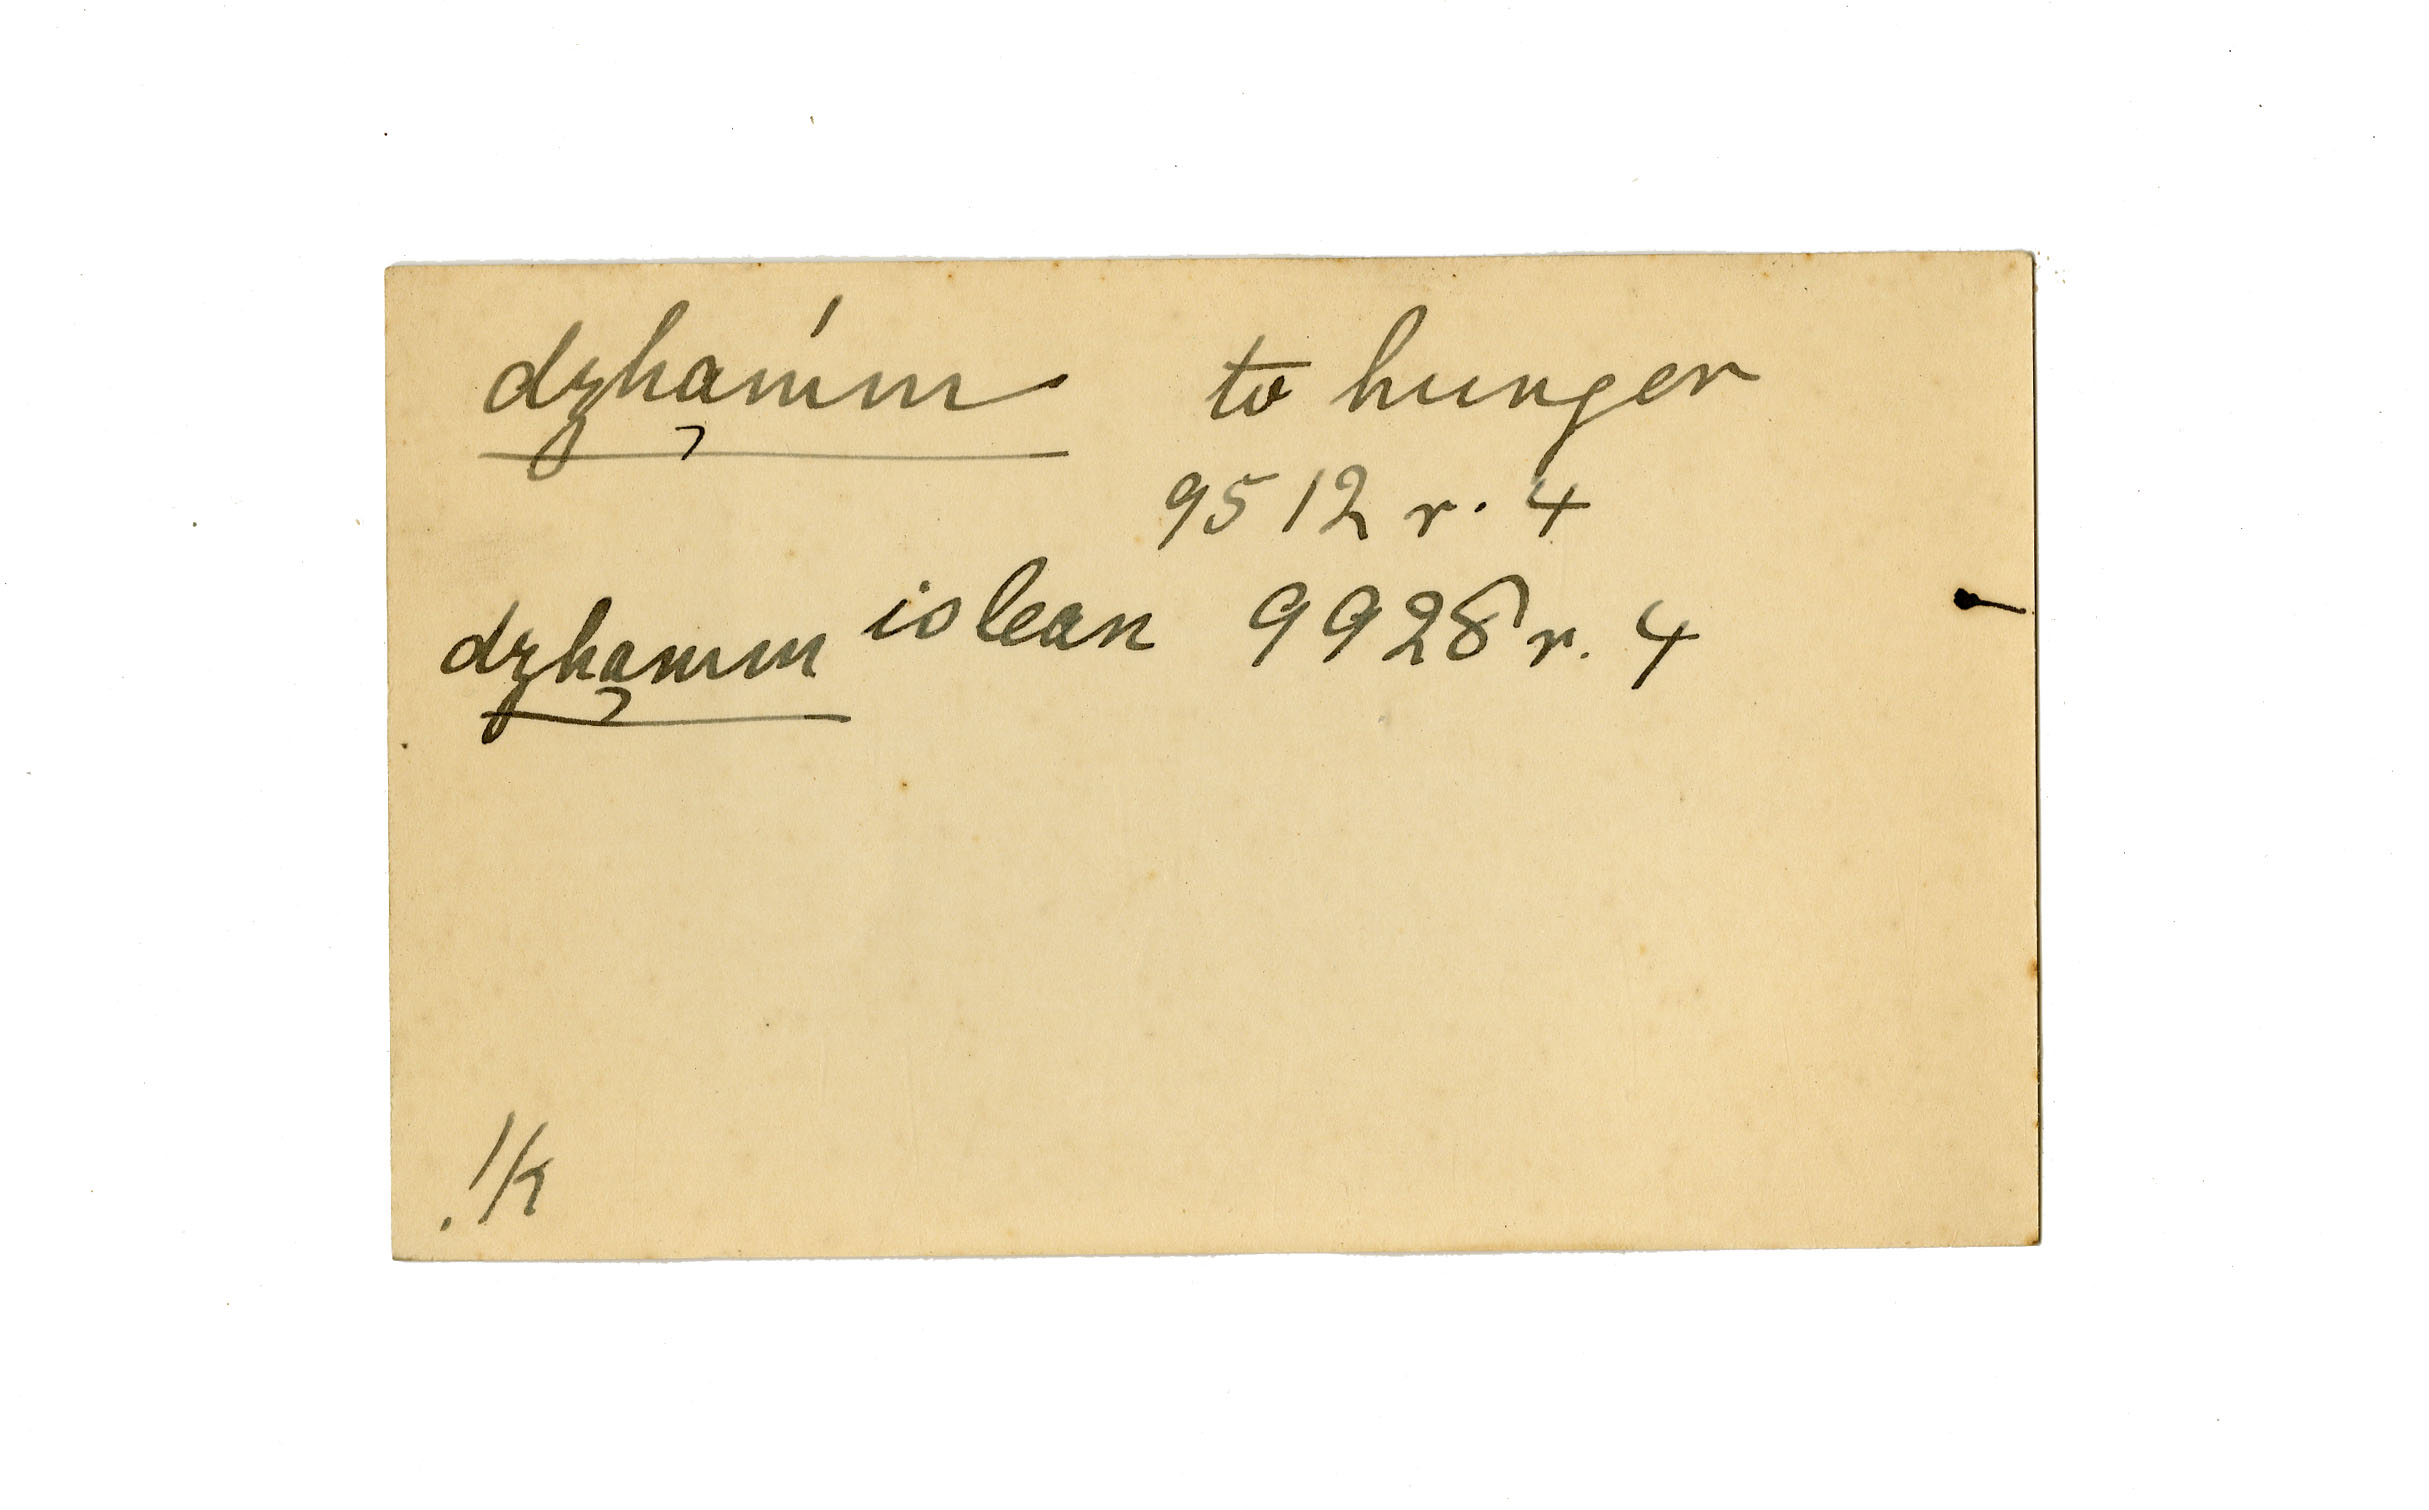 dzhą́mm to hunger
9512 r. 4
dzhąmm is lean 9928 r. 4
!k